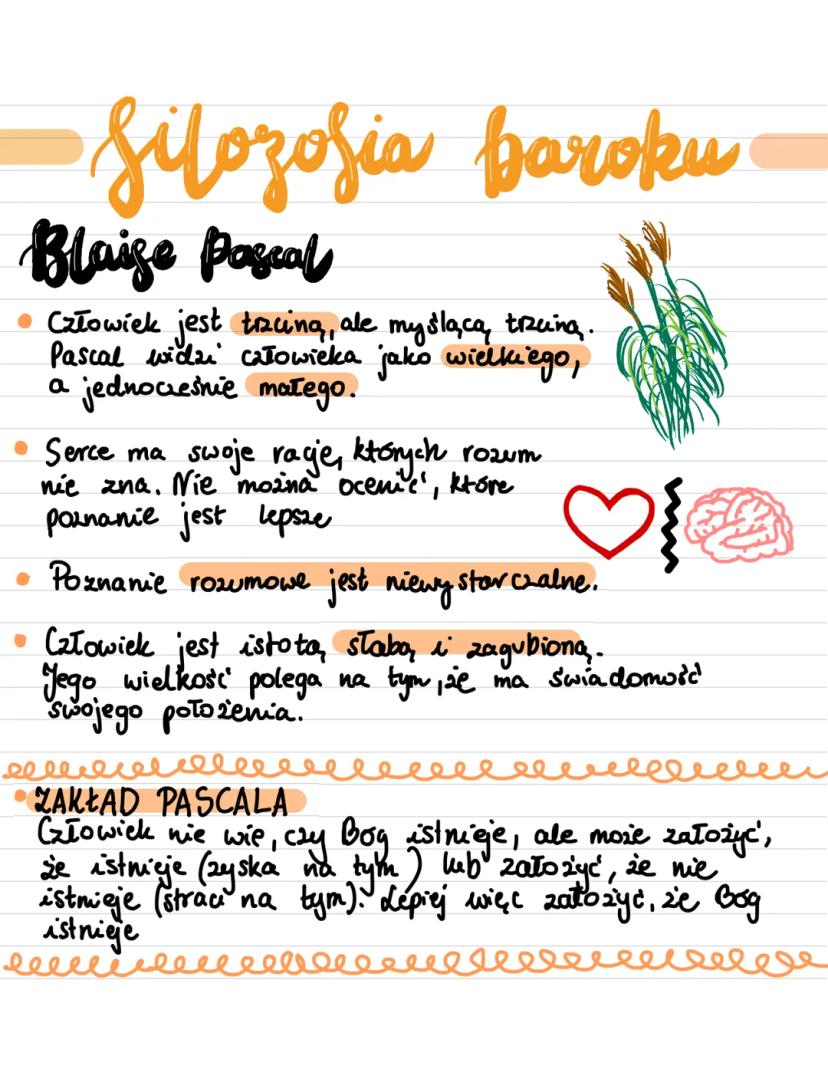 filozofia baroku
Blaise Pascal
• Człowiek jest trzciną, ale myślącą trzciną.
Pascal widzi człowieka jako wielkiego,
a jednocześnie małego.
• Serce ma swoje racje, których rozum
nie zna. Nie można ocenić, które
poznanie jest lepsze
• Poznanie rozumowe jest niewystarczalne.
• Człowiek jest istotą słabą i zagubioną.
Jego wielkość polega na tym, że ma świadomość
swojego położenia.
• ZAKŁAD PASCALA
Człowiek nie wie, czy Bóg istnieje, ale może założyć,
że istnieje (zyska na tym) lub założyć, że nie
istnieje (straci na tym). Lepiej więc założyć, że Bóg
istnieje